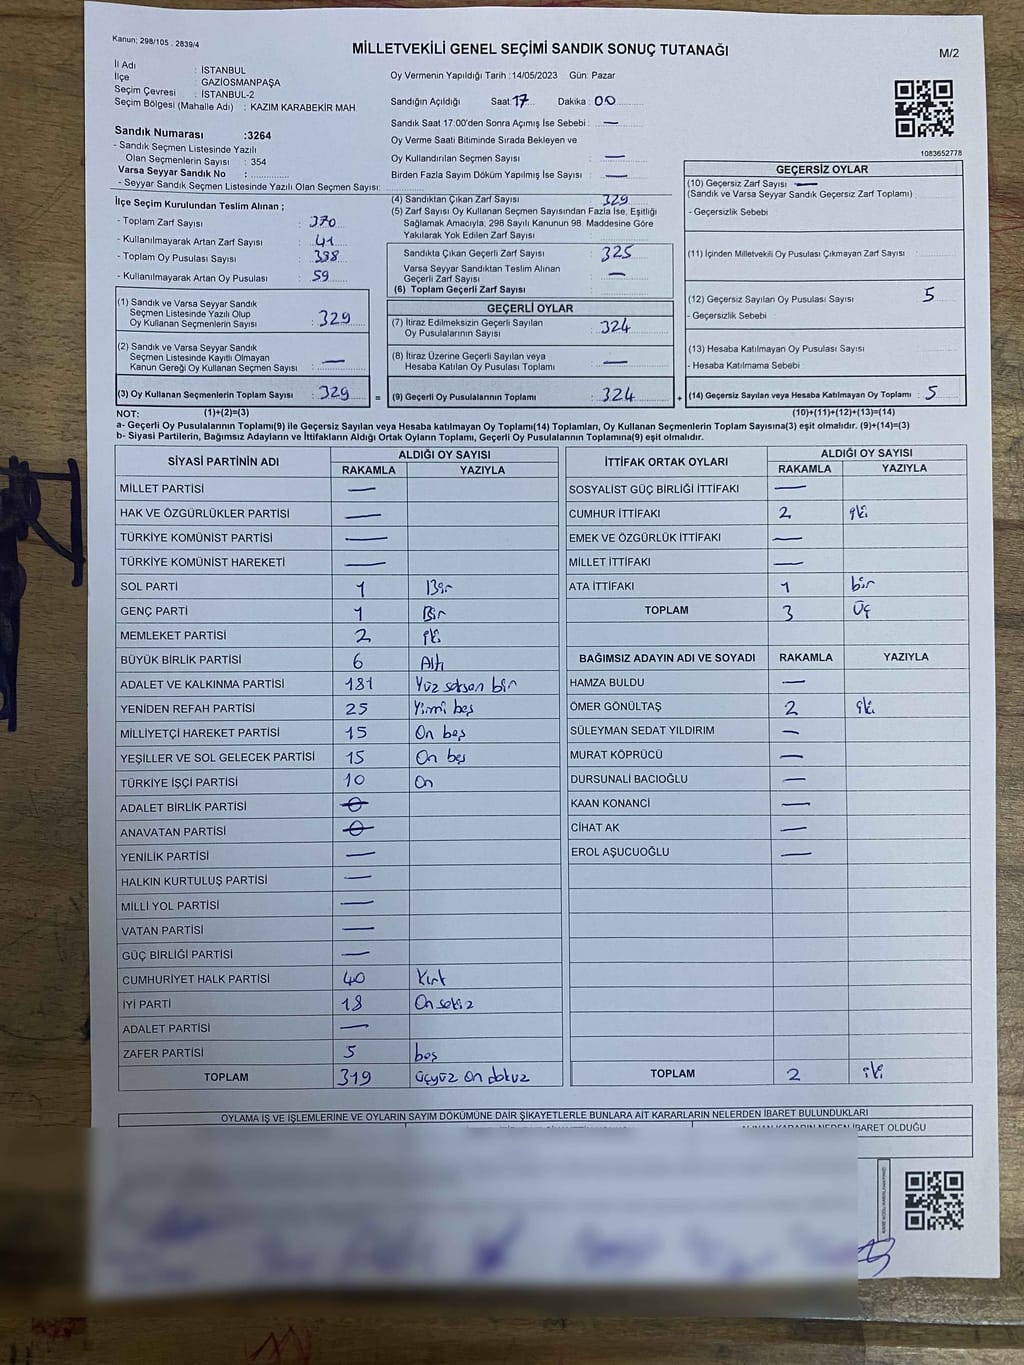 Kanun; 298/105 : 2839/4
MİLLETVEKİLİ GENEL SEÇİMİ SANDIK SONUÇ TUTANAĞI
M/2
İl Adı : İSTANBUL
İlçe : GAZİOSMANPAŞA
Seçim Çevresi : İSTANBUL-2
Seçim Bölgesi (Mahalle Adı) : KAZIM KARABEKİR MAH.
Sandık Numarası :3264
- Sandık Seçmen Listesinde Yazılı
Olan Seçmenlerin Sayısı : 354
Varsa Seyyar Sandık No :
- Seyyar Sandık Seçmen Listesinde Yazılı Olan Seçmen Sayısı:
Oy Vermenin Yapıldığı Tarih :14/05/2023 Gün: Pazar
Sandığın Açıldığı Saat: 17 Dakika : 00
Sandık Saat 17:00'den Sonra Açımış İse Sebebi : —
Oy Verme Saati Bitiminde Sırada Bekleyen ve
Oy Kullandırılan Seçmen Sayısı : —
Birden Fazla Sayım Döküm Yapılmış İse Sayısı : —
1083652778
İlçe Seçim Kurulundan Teslim Alınan ;
- Toplam Zarf Sayısı : 370
- Kullanılmayarak Artan Zarf Sayısı : 41
- Toplam Oy Pusulası Sayısı : 388
- Kullanılmayarak Artan Oy Pusulası : 59
(1) Sandık ve Varsa Seyyar Sandık
Seçmen Listesinde Yazılı Olup
Oy Kullanan Seçmenlerin Sayısı : 329
(2) Sandık ve Varsa Seyyar Sandık
Seçmen Listesinde Kayıtlı Olmayan
Kanun Gereği Oy Kullanan Seçmen Sayısı : —
(3) Oy Kullanan Seçmenlerin Toplam Sayısı : 329 =
(4) Sandıktan Çıkan Zarf Sayısı : 329
(5) Zarf Sayısı Oy Kullanan Seçmen Sayısından Fazla İse, Eşitliği
Sağlamak Amacıyla, 298 Sayılı Kanunun 98. Maddesine Göre
Yakılarak Yok Edilen Zarf Sayısı :
Sandıkta Çıkan Geçerli Zarf Sayısı : 325
Varsa Seyyar Sandıktan Teslim Alınan
Geçerli Zarf Sayısı : —
(6) Toplam Geçerli Zarf Sayısı :
GEÇERLİ OYLAR
(7) İtiraz Edilmeksizin Geçerli Sayılan
Oy Pusulalarının Sayısı : 324
(8) İtiraz Üzerine Geçerli Sayılan veya
Hesaba Katılan Oy Pusulası Toplamı : —
(9) Geçerli Oy Pusulalarının Toplamı : 324 +
GEÇERSİZ OYLAR
(10) Geçersiz Zarf Sayısı : —
(Sandık ve Varsa Seyyar Sandık Geçersiz Zarf Toplamı)
- Geçersizlik Sebebi
(11) İçinden Milletvekili Oy Pusulası Çıkmayan Zarf Sayısı :
(12) Geçersiz Sayılan Oy Pusulası Sayısı : 5
- Geçersizlik Sebebi
(13) Hesaba Katılmayan Oy Pusulası Sayısı :
- Hesaba Katılmama Sebebi
(14) Geçersiz Sayılan veya Hesaba Katılmayan Oy Toplamı : 5
NOT: (1)+(2)=(3) (10)+(11)+(12)+(13)=(14)
a- Geçerli Oy Pusulalarının Toplamı(9) ile Geçersiz Sayılan veya Hesaba katılmayan Oy Toplamı(14) Toplamları, Oy Kullanan Seçmenlerin Toplam Sayısına(3) eşit olmalıdır. (9)+(14)=(3)
b- Siyasi Partilerin, Bağımsız Adayların ve İttifakların Aldığı Ortak Oyların Toplamı, Geçerli Oy Pusulalarının Toplamına(9) eşit olmalıdır.
SİYASİ PARTİNİN ADI ALDIĞI OY SAYISI
RAKAMLA YAZIYLA
MİLLET PARTİSİ —
HAK VE ÖZGÜRLÜKLER PARTİSİ —
TÜRKİYE KOMÜNİST PARTİSİ —
TÜRKİYE KOMÜNİST HAREKETİ —
SOL PARTİ 1 Bir
GENÇ PARTİ 1 Bir
MEMLEKET PARTİSİ 2 iki
BÜYÜK BİRLİK PARTİSİ 6 Altı
ADALET VE KALKINMA PARTİSİ 181 Yüz seksen bir
YENİDEN REFAH PARTİSİ 25 Yirmi beş
MİLLİYETÇİ HAREKET PARTİSİ 15 On beş
YEŞİLLER VE SOL GELECEK PARTİSİ 15 On beş
TÜRKİYE İŞÇİ PARTİSİ 10 On
ADALET BİRLİK PARTİSİ 0
ANAVATAN PARTİSİ 0
YENİLİK PARTİSİ —
HALKIN KURTULUŞ PARTİSİ —
MİLLİ YOL PARTİSİ —
VATAN PARTİSİ —
GÜÇ BİRLİĞİ PARTİSİ —
CUMHURİYET HALK PARTİSİ 40 Kırk
İYİ PARTİ 18 On sekiz
ADALET PARTİSİ —
ZAFER PARTİSİ 5 beş
TOPLAM 319 üçyüz on dokuz
İTTİFAK ORTAK OYLARI ALDIĞI OY SAYISI
RAKAMLA YAZIYLA
SOSYALİST GÜÇ BİRLİĞİ İTTİFAKI —
CUMHUR İTTİFAKI 2 iki
EMEK VE ÖZGÜRLÜK İTTİFAKI —
MİLLET İTTİFAKI —
ATA İTTİFAKI 1 bir
TOPLAM 3 Üç
BAĞIMSIZ ADAYIN ADI VE SOYADI RAKAMLA YAZIYLA
HAMZA BULDU —
ÖMER GÖNÜLTAŞ 2 iki
SÜLEYMAN SEDAT YILDIRIM —
MURAT KÖPRÜCÜ —
DURSUNALİ BACIOĞLU —
KAAN KONANCİ —
CİHAT AK —
EROL AŞUCUOĞLU —
TOPLAM 2 iki
OYLAMA İŞ VE İŞLEMLERİNE VE OYLARIN SAYIM DÖKÜMÜNE DAİR ŞİKAYETLERLE BUNLARA AİT KARARLARIN NELERDEN İBARET BULUNDUKLARI
ALINAN KARARIN NEDEN İBARET OLDUĞU